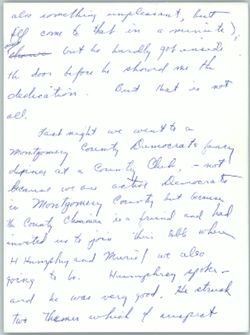 also something unpleasant, but
I'll come to that in a minute),
but he hardly got inside
the door before he showed me the
dedication. But that is not
all.
Last night we went to a
Montgomery County Democrats fancy
dinner at a Country Club, - not
because we are active Democrats
in Montgomery County but because
the County Chairman is a friend and had
invited us to join their table where
H Humphrey and Muriel we also
going to be. Humphrey spoke -
and he was very good. He struck
two themes which I suspect